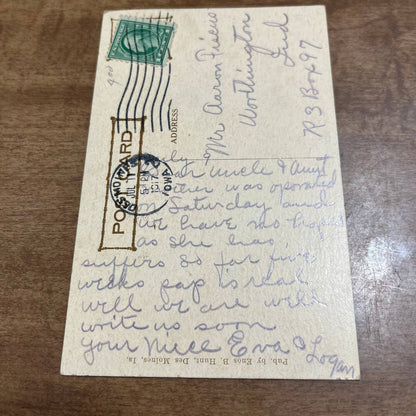 POST CARD
ADDRESS
DES MOINES
JUL
5 PM
1917
IOWA
Mr Aaron
Worthington
Ind
R 3 Box 97
Dear uncle & Aunt
was operated
on Saturday and
we have no hopes
as she has
suffers so for five
weeks pap is real
well we are well
write us soon
your Niece Eva & Logan
Pub. by Enos B. Hunt, Des Moines, Ia.